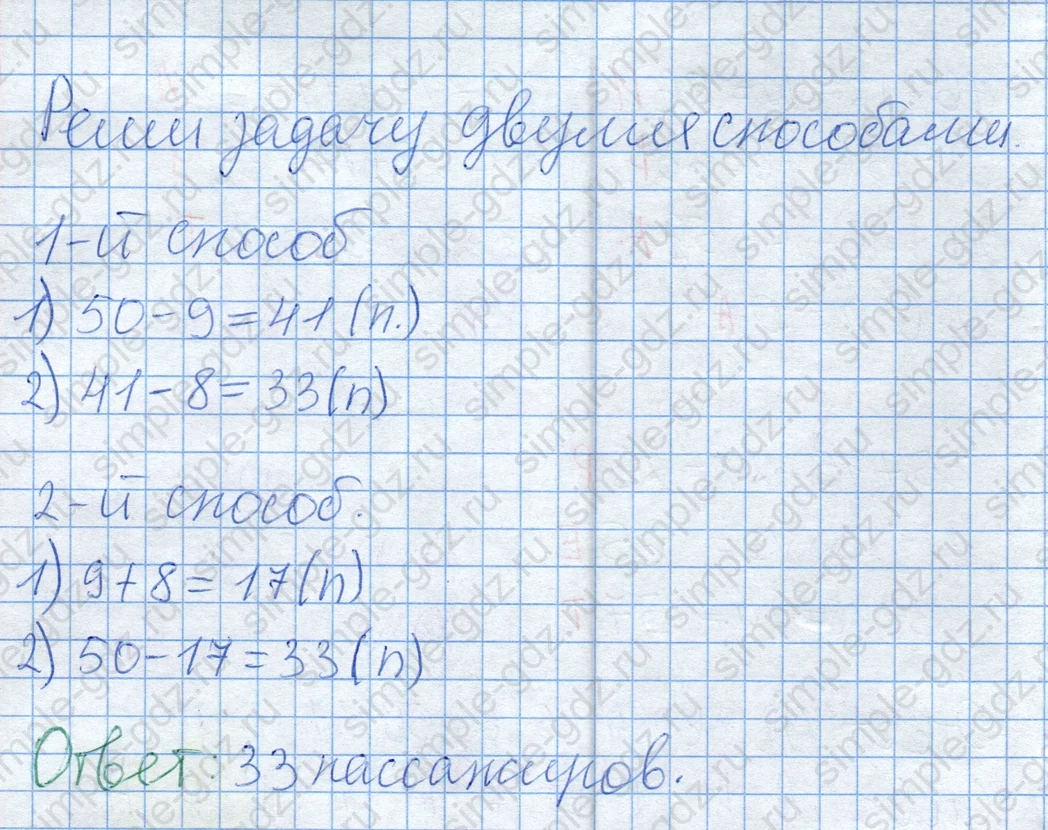 Реши задачу двумя способами.
1-й способ
1) 50-9=41 (п.)
2) 41-8=33(п)
2-й способ.
1) 9+8=17(п)
2) 50-17=33(п)
Ответ: 33 пассажиров.
simple-gdz.ru